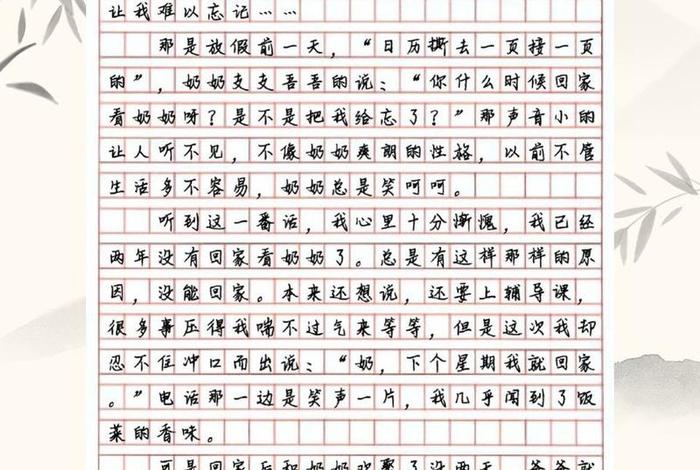 让我难以忘记……
那是放假前一天，“日历撕去一页接一页
的”，奶奶支支吾吾的说：“你什么时候回家
看奶奶呀？是不是把我给忘了？”那声音小的
让人听不见，不像奶奶爽朗的性格，以前不管
生活多不容易，奶奶总是笑呵呵。
听到这一番话，我心里十分惭愧，我已经
两年没有回家看奶奶了。总是有这样那样的原
因，没能回家。本来还想说，还要上辅导课，
很多事压得我喘不过气来等等，但是这次我却
忍不住冲口而出说：“奶，下个星期我就回家
。”电话那一边是笑声一片，我几乎闻到了饭
菜的香味。
可是回家后和奶奶欢聚了没两天，爸爸就